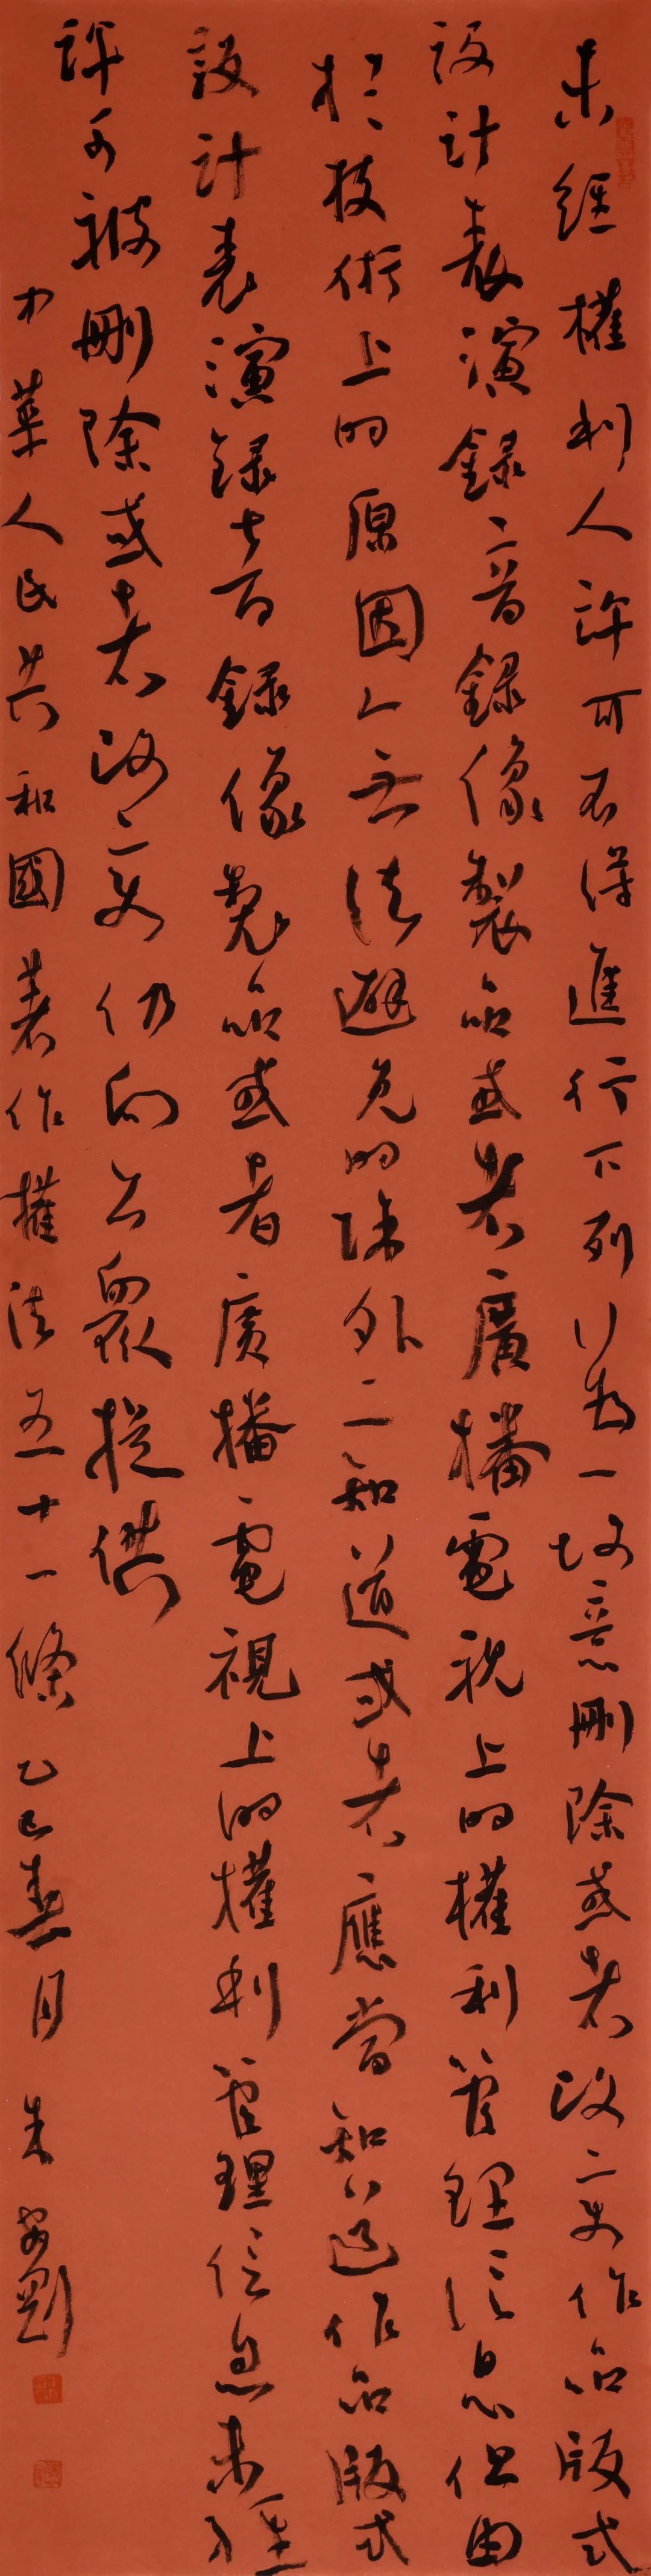 未經權利人許可不得進行下列行為一故意刪除或者改變作品版式
設計表演錄音錄像製品或者廣播電視上的權利管理信息但由
於技術上的原因無法避免的除外二知道或者應當知道作品版式
設計表演錄音錄像製品或者廣播電視上的權利管理信息未經
許可被刪除或者改變仍向公眾提供
中華人民共和國著作權法五十一條 乙巳春月 朱